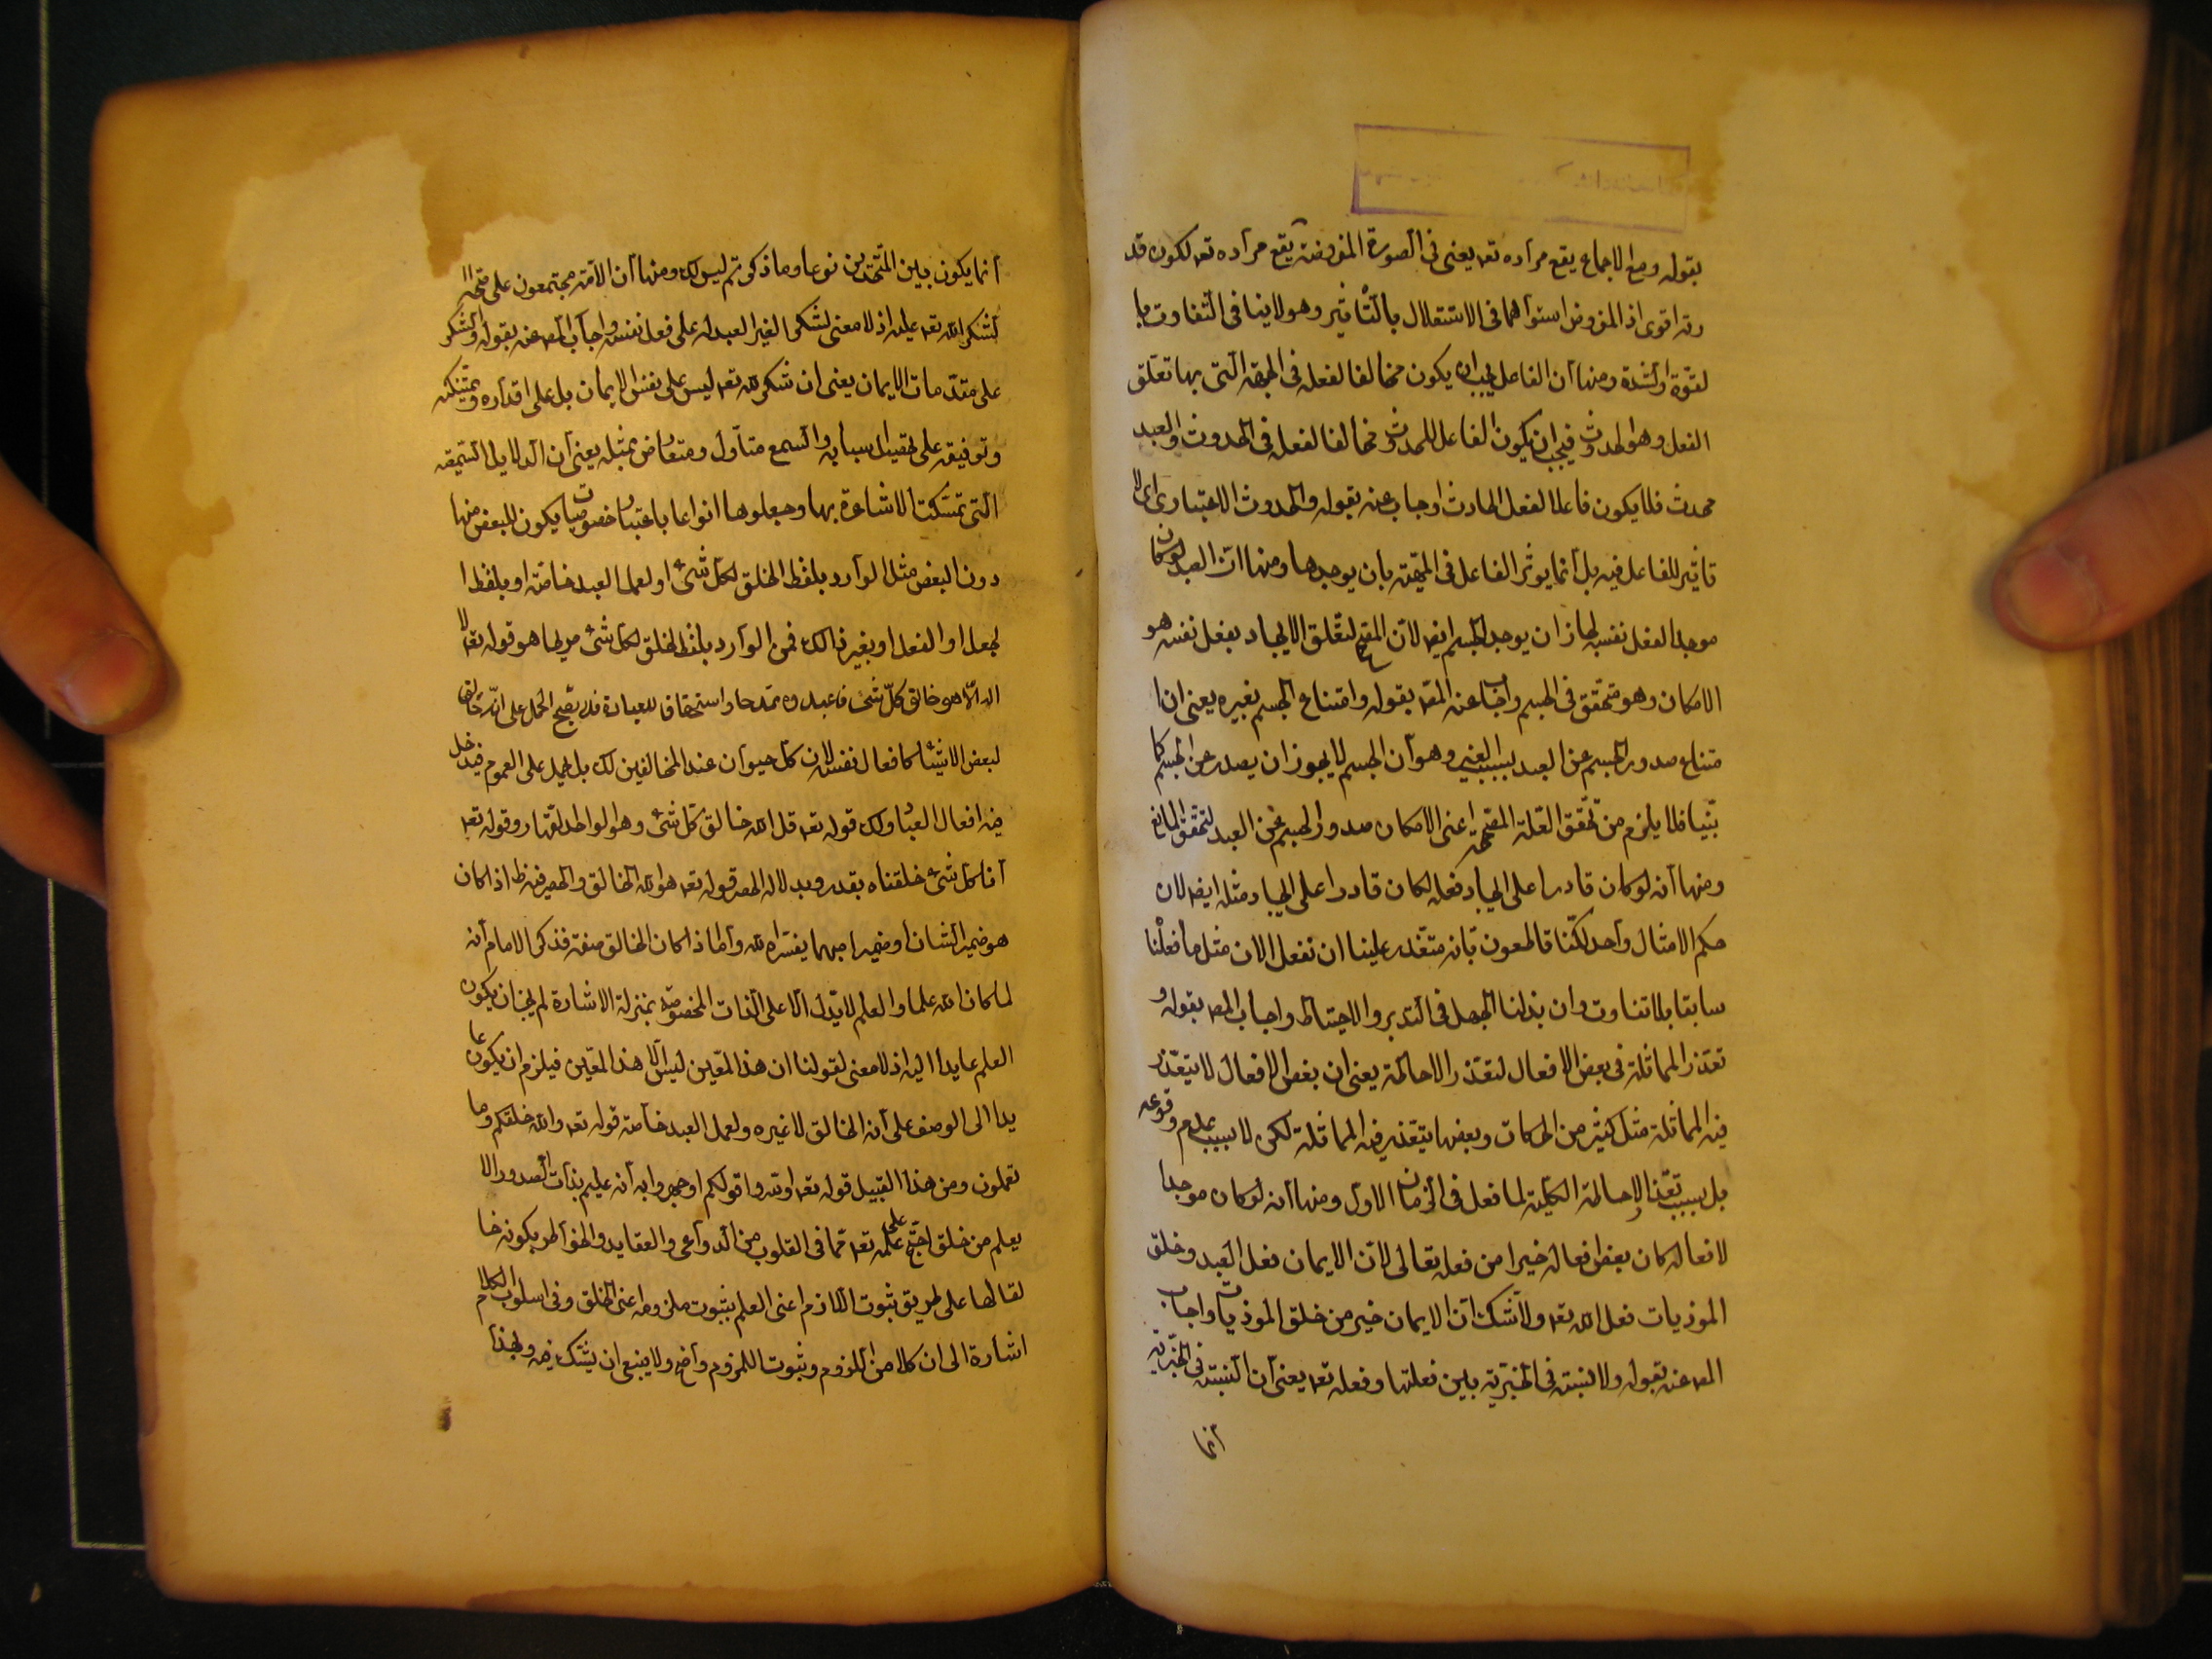 بقوله ومع الاجماع يقع مراده تعه يعنى فى الصورة المفروضة يقع مراده تعه لكون قد
رته اقوى اذ المفروض استواهما فى الاستقلال بالتأثير وهو لاينافى التفاوت با
لقوة والشدة ومنها ان الفاعل يجب ان يكون مخالفا لفعله فى الجهة التى بها تعلق
الفعل وهو الحدوث فيجب ان يكون الفاعل للمحدث مخالفا لفعله فى الحدوث والعبد
محدث فلا يكون فاعلا لفعل الحادث اوجاب عنه بقوله والحدوث الاعتبارى اى لا
تاثير للفاعل فيه بل انما يوثر الفاعل فى المهية بان يوجدها ومنها ان العبد لوكان
موجدا لفعل نفسه لجاز ان يوجد الجسم ايضا لان المصحح لتعلق الايجاد بفعل نفسه هو
الامكان وهو متحقق فى الجسم واجاب عن المصه بقوله وامتناع الجسم بغيره يعنى ان ا
متناع صدور الجسم عن العبد بسبب الغير وهو ان الجسم لايجوز ان يصدر عن الجسم كما
بينا فلا يلزم من تحقق العلة المصححة اعنى الامكان صدور الجسم عن العبد لتحقق المانع
ومنها انه لو كان قادرا على ايجاد فعله لكان قادرا على ايجاد مثله ايضا لان
حكم الامثال واحد لكنا قاطعون بانه متعذر علينا ان نفعل الان مثل ما فعلنا
سابقا بلا تفاوت وان بذلنا الجهد فى التدبر والاحتياط واجاب المصه بقوله و
تعذر المماثلة فى بعض الافعال لتعذر الاحاطة يعنى ان بعض الافعال لا يتعذر
فيه المماثلة مثل كثير من الحركات وبعضها يتعذر فيه المماثلة لكن لا بسبب عدم وقوعه
بل بسبب تعذر الاحاطة الكلية لما فعل فى الزمان الاول ومنها انه لو كان موجدا
لافعاله كان بعض افعاله خيرا من فعله تعالى لان الايمان فعل العبد وخلق
الموذيات فعل الله تعه ولا شك ان الايمان خير من خلق الموذيات واجاب
المصه عنه بقوله ولا نسبة فى الخيرية بين فعلنا وفعله تعه يعنى ان النسبة فى الخيرية
انما
انما يكون بين المتحدين نوعا وما ذكرتم ليس كك ومنها ان الامة مجتمعون على صحة ا
لشكر لله تعه عليه اذ لا معنى لشكر الغير العبد له على فعل نفسه واجاب المصه عنه بقوله والشكر
على مقدمات الايمان يعنى ان شكر الله تعه ليس على نفس الايمان بل على اقداره وتمكينه
وتوفيقه على تحصيل اسبابه والسمع متاول ومتعارض بمثله يعنى ان الدلايل السمعية
التى تمسكت الاشاعرة بها وجعلوها انواعا باعتبار خصوصيات يكون للبعض منها
دون البعض مثل الوارد بلفظ الخلق لكل شئ او لعمل العبد خاصة او بلفظ ا
لجعل او الفعل او بغير ذالك فمن الوارد بلفظ الخلق لكل شئ صريحا هو قوله تعه لا
اله الا هو خالق كل شئ فاعبدوه تمدحا واستحقاقا للعبادة فلا يصح الحمل على انه خالق
لبعض الاشياء كافعال نفسه لان كل حيوان عند المخالفين كك بل يحمل على العموم فيدخل
فيه افعال العباد وكك قوله تعه قل الله خالق كل شئ وهو الواحد القهار وقوله تعه
انا كل شئ خلقناه بقدر وبدلالة الحصر قوله تعه هو الله الخالق والحصر فيه ظ اذا كان
هو ضمير الشان او ضميرا مبهما يفسره الله واما اذا كان الخالق صفة فذكر الامام انه
لما كان الله علما والعلم لا يدل الا على الذات المخصوصة بمنزلة الاشارة لم يجز ان يكون
العلم عايدا اليه اذ لا معنى لقولنا ان هذا المعين ليس الا هذا المعين فيلزم ان يكون عا
يدا الى الوصف على انه الخالق لا غيره ولعمل العبد خاصة قوله تعه والله خلقكم وما
تعملون ومن هذا القبيل قوله تعه واسروا قولكم او اجهروا به انه عليم بذات الصدور الا
يعلم من خلق احتج على علمه تعه بما فى القلوب من الدواعى والعقايد والخواطر بكونه خا
لقا لها على طريق ثبوت اللازم اعنى العلم بثبوت ملزومه اعنى الخلق وفى اسلوب الكلام
اشارة الى ان كلا من اللزوم وثبوت الملزوم واضح ولا ينبغى ان يشك فيه ولهذا